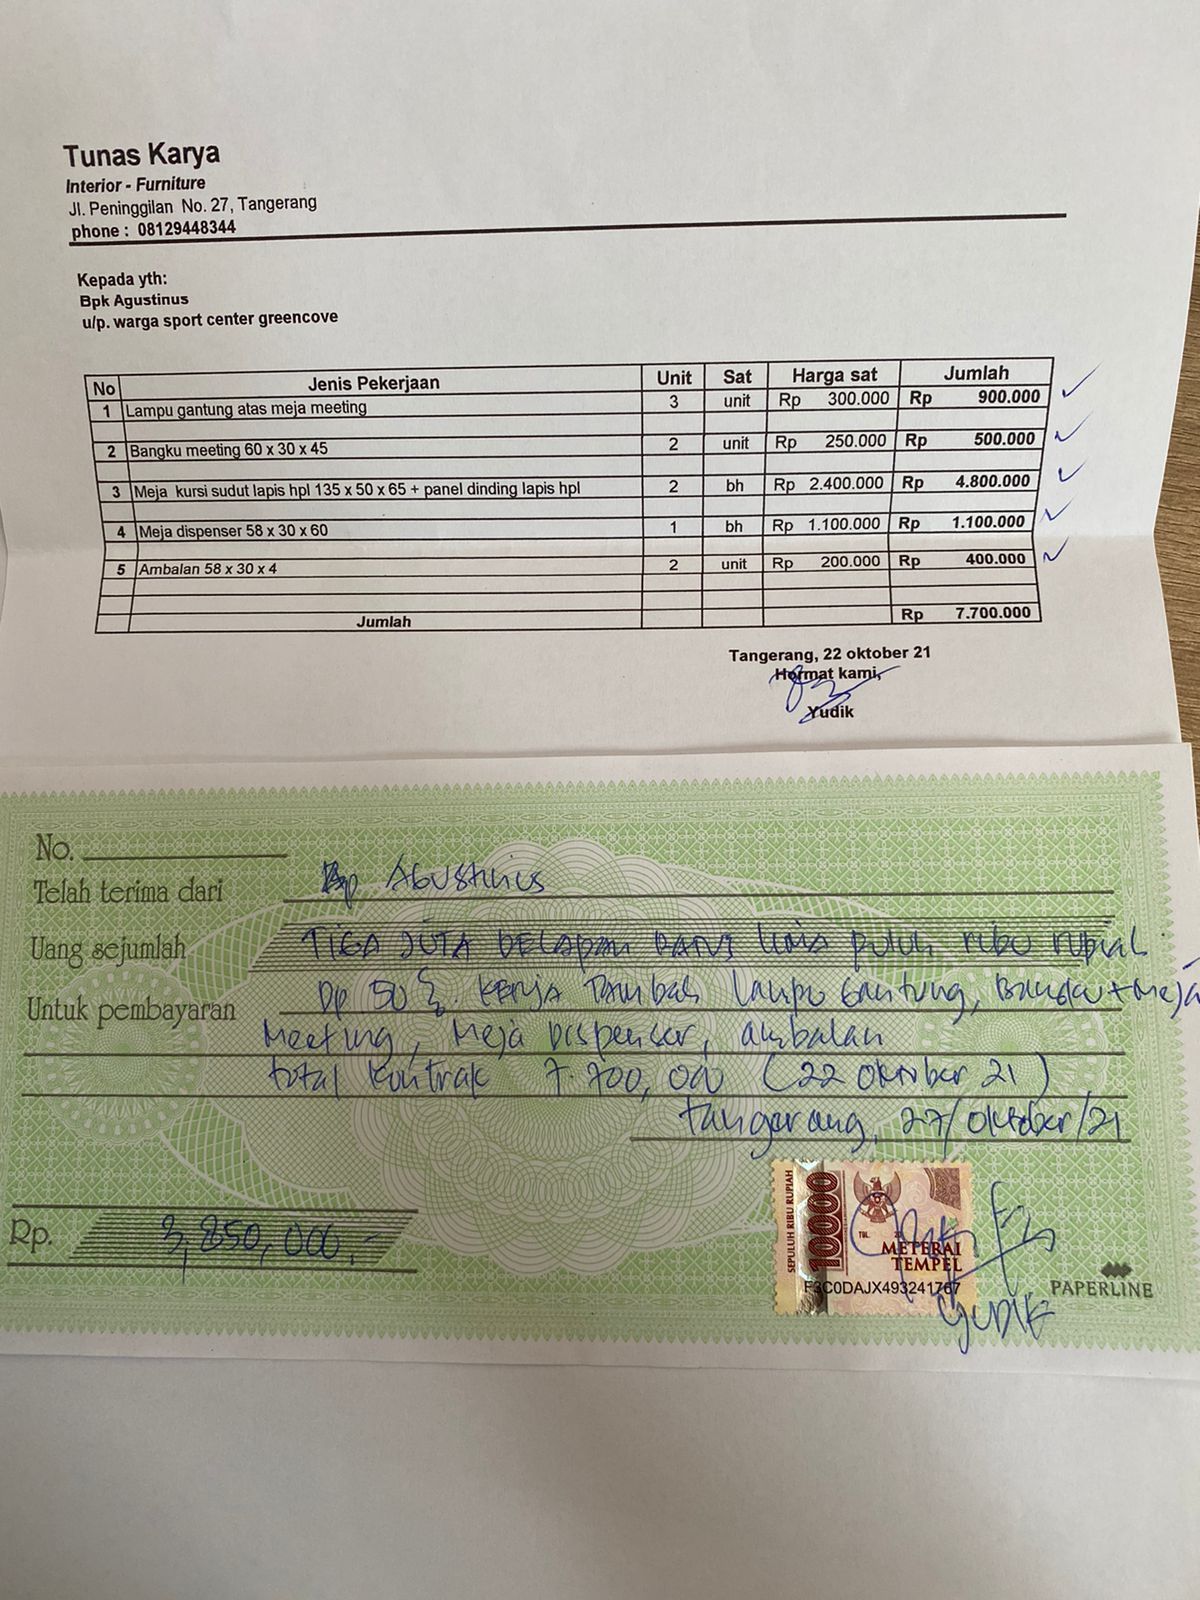 Tunas Karya
Interior - Furniture
Jl. Peninggilan No. 27, Tangerang
phone : 08129448344
Kepada yth:
Bpk Agustinus
u/p. warga sport center greencove
No Jenis Pekerjaan Unit Sat Harga sat Jumlah
1 Lampu gantung atas meja meeting 3 unit Rp 300.000 Rp 900.000
2 Bangku meeting 60 x 30 x 45 2 unit Rp 250.000 Rp 500.000
3 Meja kursi sudut lapis hpl 135 x 50 x 65 + panel dinding lapis hpl 2 bh Rp 2.400.000 Rp 4.800.000
4 Meja dispenser 58 x 30 x 60 1 bh Rp 1.100.000 Rp 1.100.000
5 Ambalan 58 x 30 x 4 2 unit Rp 200.000 Rp 400.000
Jumlah Rp 7.700.000
Tangerang, 22 oktober 21
Hormat kami,
Yudik
No.
Telah terima dari Bp Agustinus
Uang sejumlah TIGA JUTA DELAPAN RATUS lima puluh ribu rupiah
Untuk pembayaran Dp 50 %. Kerja Tambah lampu Gantung, Bangku + Meja
Meeting, Meja Dispenser, ambalan
total kontrak 7.700,000 (22 oktober 21)
tangerang, 27/oktober/21
Rp. 3,850,000.-
SEPULUH RIBU RUPIAH
10000
TGL. 20
METERAI
TEMPEL
F3C0DAJX493241767
PAPERLINE
YUDIK